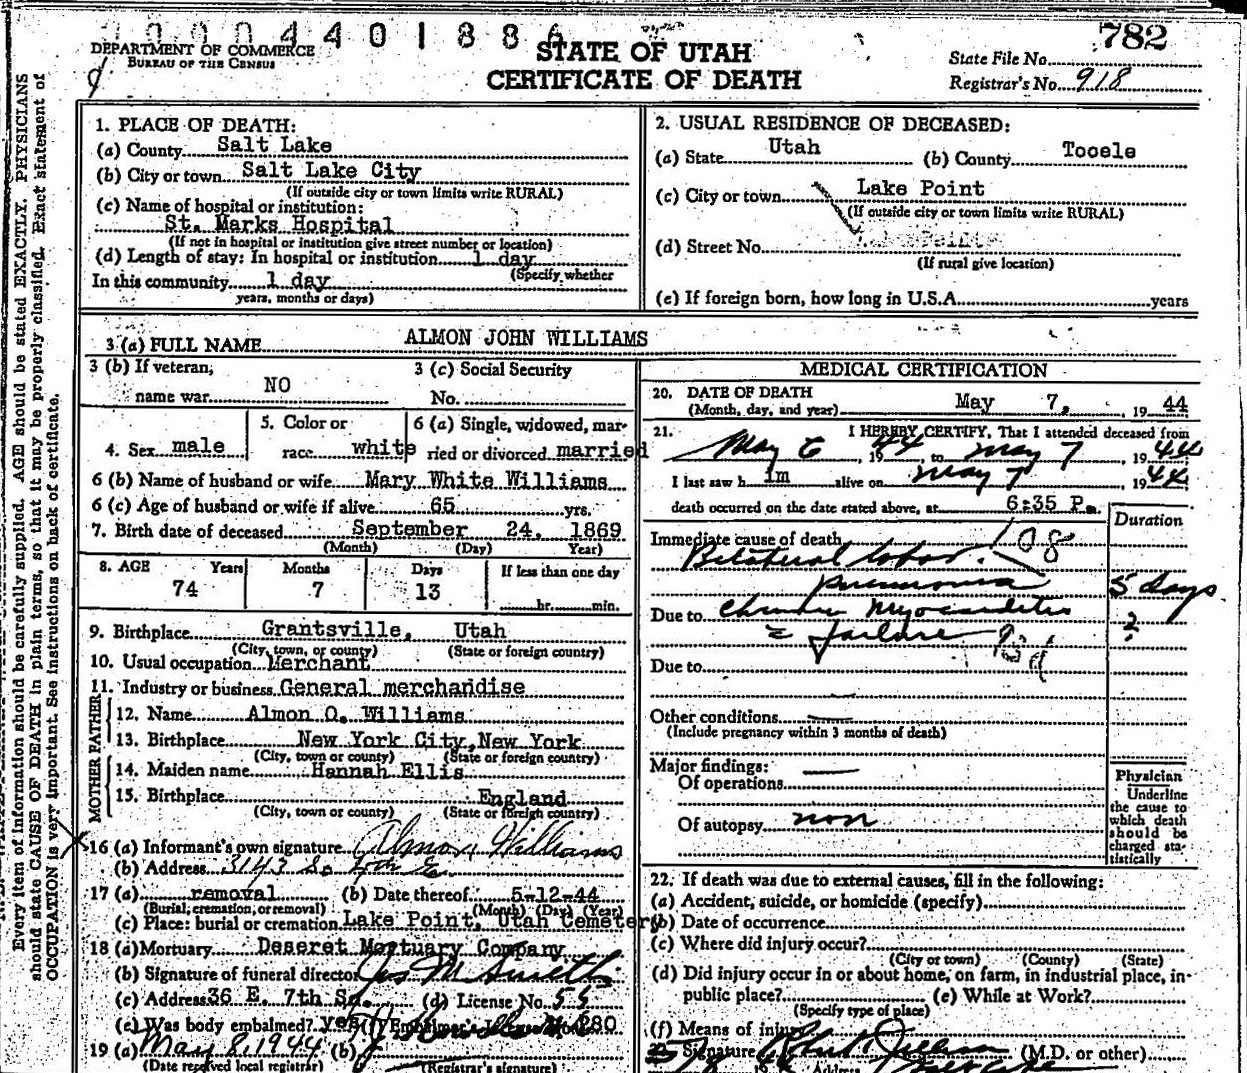 0004401886
DEPARTMENT OF COMMERCE
BUREAU OF THE CENSUS
STATE OF UTAH
CERTIFICATE OF DEATH
782
State File No.
Registrar's No. 918
Every item of information should be carefully supplied. AGE should be stated EXACTLY. PHYSICIANS
should state CAUSE OF DEATH in plain terms, so that it may be properly classified. Exact statement of
OCCUPATION is very important. See instructions on back of certificate.
1. PLACE OF DEATH:
(a) County Salt Lake
(b) City or town Salt Lake City
(If outside city or town limits write RURAL)
(c) Name of hospital or institution:
St. Marks Hospital
(If not in hospital or institution give street number or location)
(d) Length of stay: In hospital or institution 1 day
(Specify whether
In this community 1 day
years, months or days)
2. USUAL RESIDENCE OF DECEASED:
(a) State Utah (b) County Tooele
(c) City or town Lake Point
(If outside city or town limits write RURAL)
(d) Street No.
(If rural give location)
(e) If foreign born, how long in U.S.A. years
3 (a) FULL NAME ALMON JOHN WILLIAMS
3 (b) If veteran, name war NO
3 (c) Social Security No.
4. Sex male
5. Color or race white
6 (a) Single, widowed, married or divorced married
6 (b) Name of husband or wife Mary White Williams
6 (c) Age of husband or wife if alive 65 yrs.
7. Birth date of deceased September 24, 1869
(Month) (Day) Year)
8. AGE Years Months Days If less than one day
74 7 13 hr. min.
9. Birthplace Grantsville, Utah
(City, town, or county) (State or foreign country)
10. Usual occupation Merchant
11. Industry or business General merchandise
FATHER
12. Name Almon O. Williams
13. Birthplace New York City, New York
(City, town or county) (State or foreign country)
MOTHER
14. Maiden name Hannah Ellis
15. Birthplace England
(City, town or county) (State or foreign country)
16 (a) Informant's own signature Almon Williams
(b) Address 3143 So.
17 (a) removal (b) Date thereof 5-12-44
(Burial, cremation, or removal) (Month) (Day) (Year)
(c) Place: burial or cremation Lake Point, Utah Cemetery
18 (a) Mortuary Deseret Mortuary Company
(b) Signature of funeral director Jos M Smith
(c) Address 36 E. 7th So. (d) License No. 55
(e) Was body embalmed? yes (f) Embalmer's License No. 280
19 (a) May 8, 1944 (b)
(Date received local registrar) (Registrar's signature)
MEDICAL CERTIFICATION
20. DATE OF DEATH
(Month, day, and year) May 7, 19 44
21. I HEREBY CERTIFY, That I attended deceased from
May 6, 19 44, to May 7 19 44
I last saw h im alive on May 7 19 44
death occurred on the date stated above, at 6:35 P.
Duration
Immediate cause of death 108
Bilateral lobar
pneumonia 5 days
Due to Chronic Myocarditis ?
failure
Due to
Other conditions
(Include pregnancy within 3 months of death)
Major findings:
Of operations
Of autopsy non
Physician
Underline
the cause to
which death
should be
charged sta-
tistically
22. If death was due to external causes, fill in the following:
(a) Accident, suicide, or homicide (specify)
(b) Date of occurrence
(c) Where did injury occur?
(City or town) (County) (State)
(d) Did injury occur in or about home, on farm, in industrial place, in-
public place? (e) While at Work?
(Specify type of place)
(f) Means of injury
Signature (M.D. or other)
Address